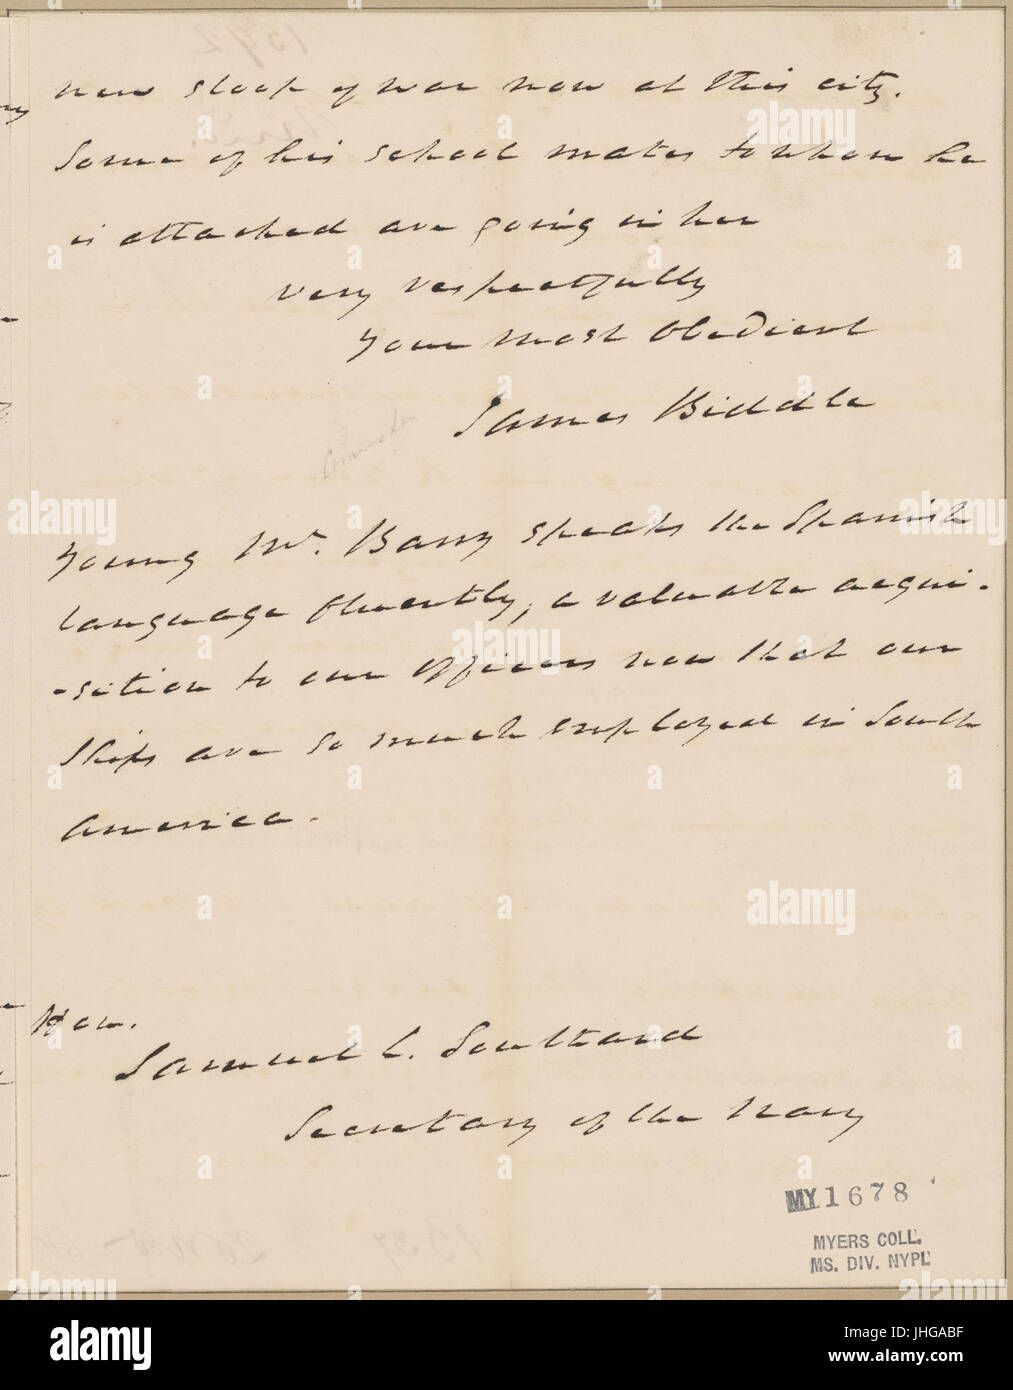 new sloop of war now at this city.
Some of his school mates to whom he
is attached are going in her
very respectfully
your most obedient
James Biddle
Young Mr. Barry speaks the Spanish
language fluently, a valuable acqui-
-sition to our officers now that our
Ships are so much employed in South
America.
Hon.
Samuel L. Southard
Secretary of the Navy
MY1678
MYERS COLL.
MS. DIV. NYPL
alamy
Image ID: JHGABF
www.alamy.com